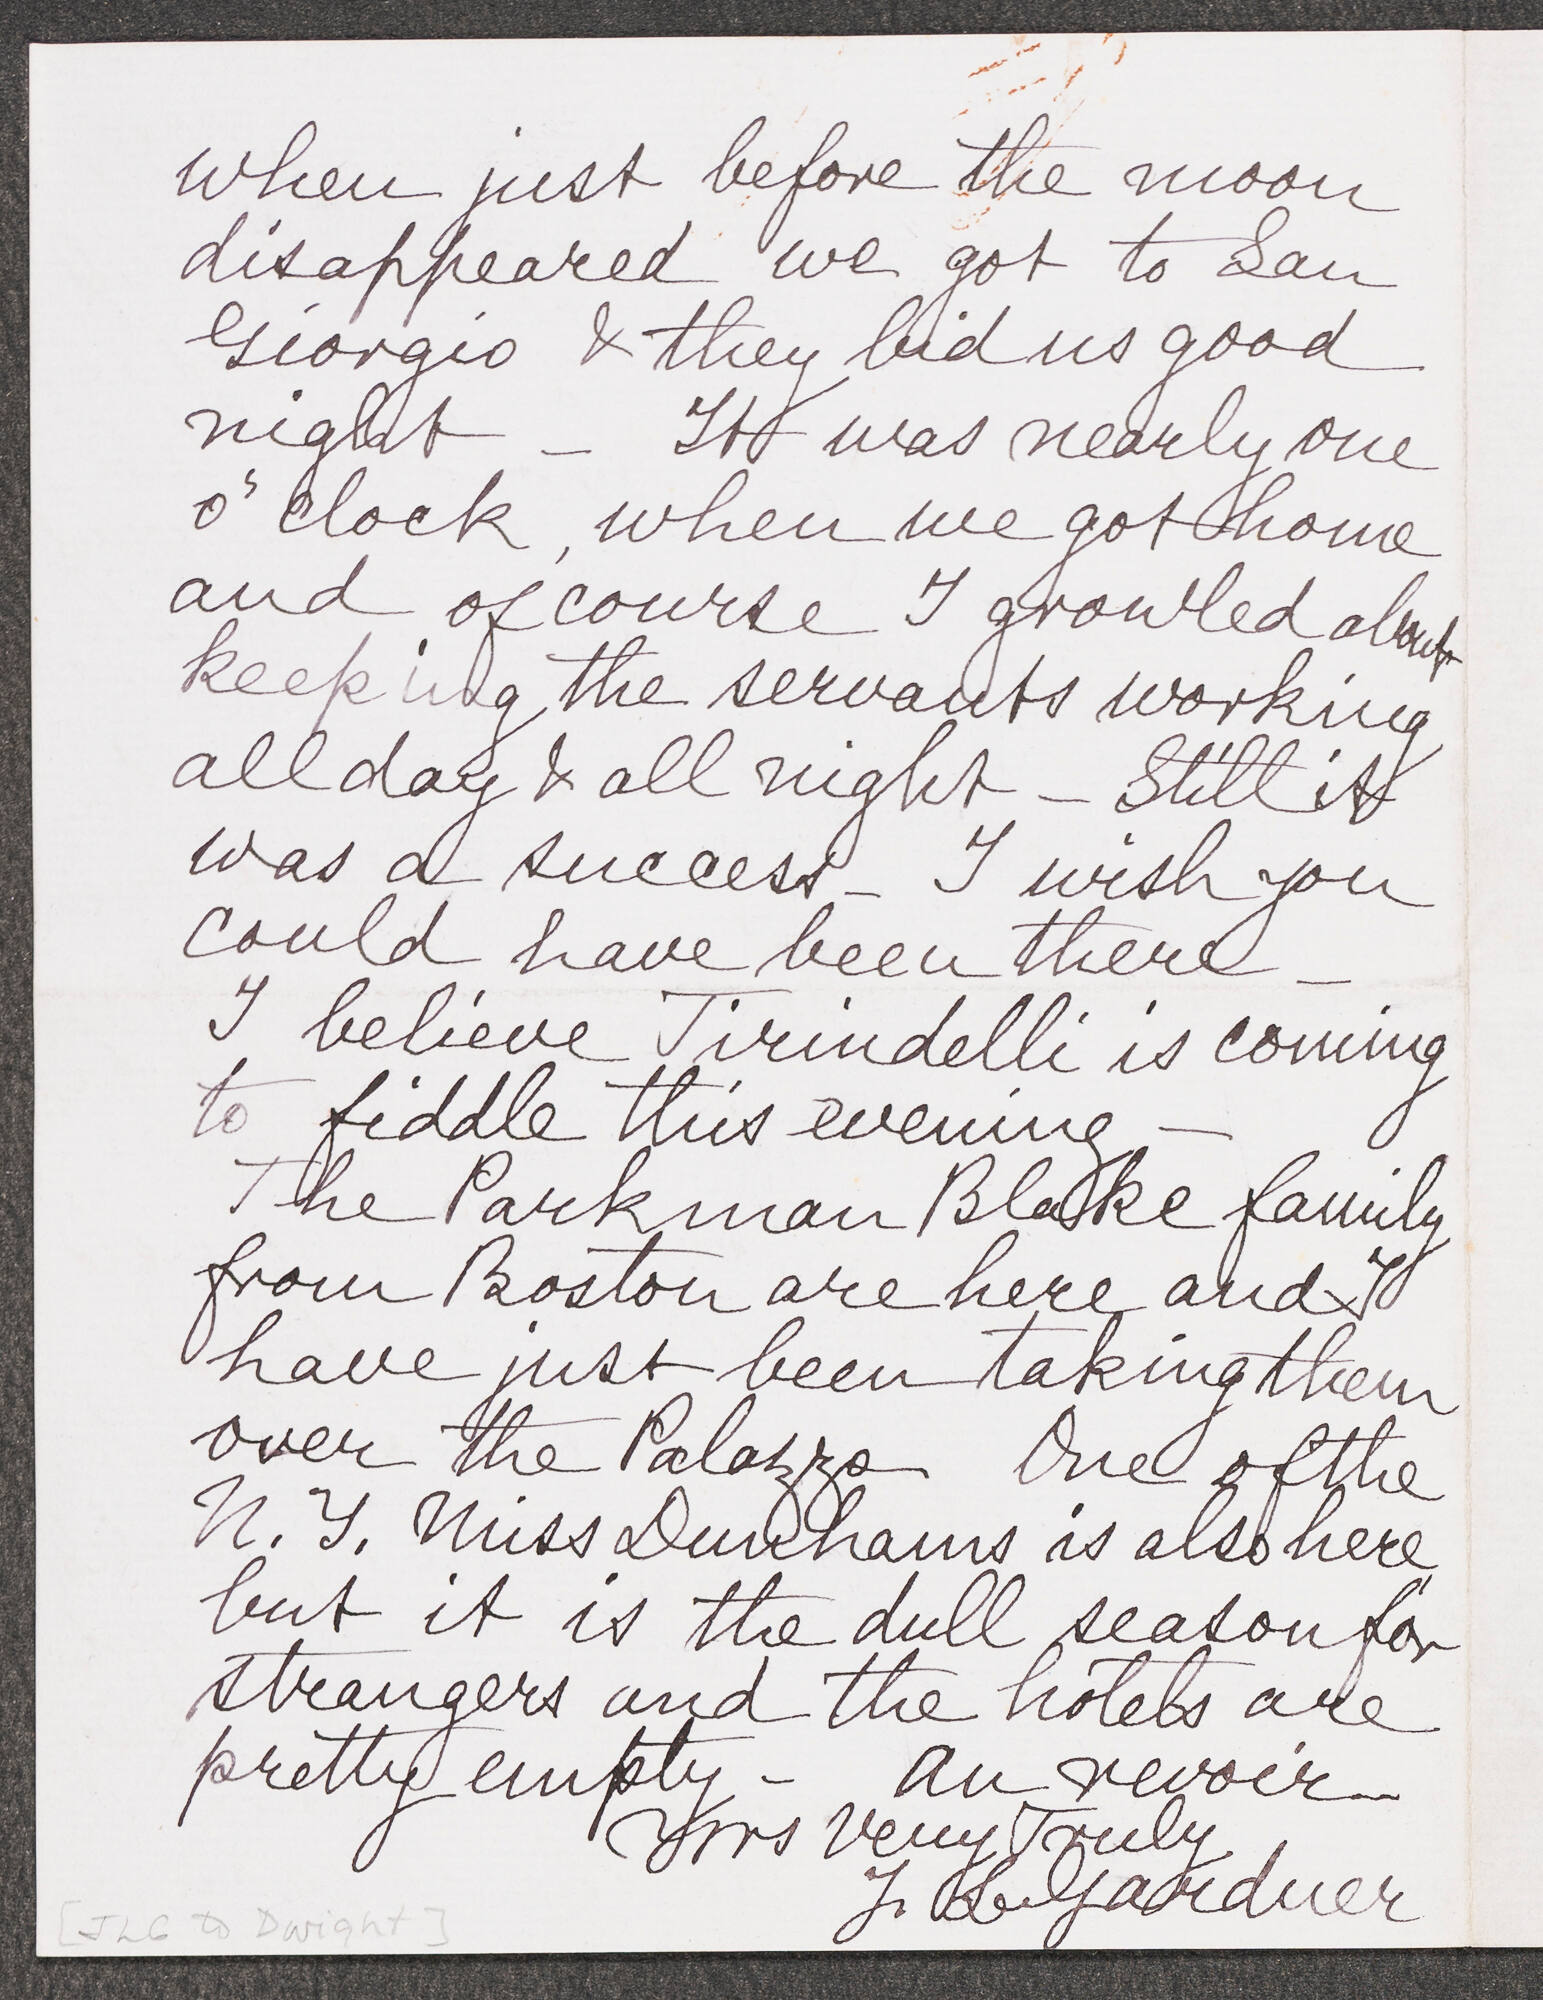 when just before the moon
disappeared we got to San
Giorgio & they bid us good
night – It was nearly one
o'clock, when we got home
and of course I growled about
keeping the servants working
all day & all night – Still it
was a success – I wish you
could have been there –
I believe Tirindelli is coming
to fiddle this evening –
The Parkman Blake family
from Boston are here and I
have just been taking them
over the Palazzo One of the
N.Y. Miss Dunhams is also here
but it is the dull season for
strangers and the hotels are
pretty empty – Au revoir –
Yrs Very Truly
J. L. Gardner
[JLG to Dwight]